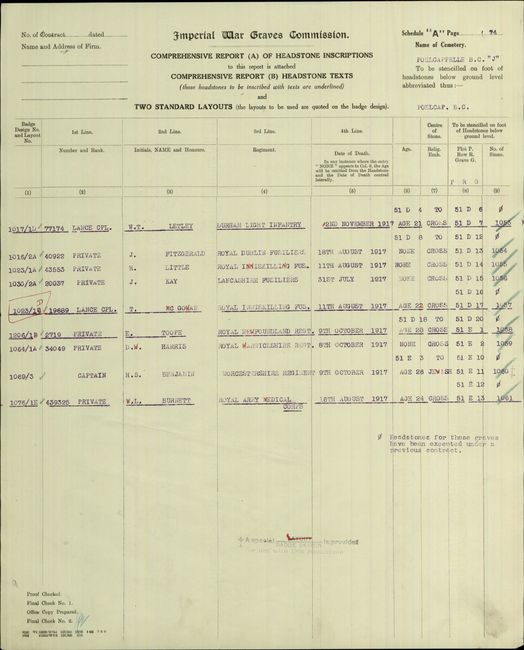 No. of Contract dated
Name and Address of Firm.
Imperial War Graves Commission.
COMPREHENSIVE REPORT (A) OF HEADSTONE INSCRIPTIONS
to this report is attached
COMPREHENSIVE REPORT (B) HEADSTONE TEXTS
(those headstones to be inscribed with texts are underlined)
and
TWO STANDARD LAYOUTS (the layouts to be used are quoted on the badge design).
Schedule "A" Page 74
Name of Cemetery.
POELCAPPELLE B.C. "J"
To be stencilled on foot of
headstones below ground level
abbreviated thus:—
POELCAP. B.C.
Badge Design No. and Layout No. 1st Line. 2nd Line. 3rd Line. 4th Line. Centre of Stone. To be stencilled on foot of Headstones below ground level.
Number and Rank. Initials, NAME and Honours. Regiment. Date of Death. Age. Relig. Emb. Plot P. Row R. Grave G. No. of Stone.
In any instance where the entry "NONE" appears in Col. 6, the Age will be omitted from the Headstone and the Date of Death central laterally.
P R G
(1) (2) (3) (4) (5) (6) (7) (8) (9)
51 D 4 TO 51 D 6 ø
1017/1D 77174 LANCE CPL. W.T. LETLEY DURHAM LIGHT INFANTRY 2ND NOVEMBER 1917 AGE 21 CROSS 51 D 7 1053
51 D 8 TO 51 D 12 ø
1016/2A 40922 PRIVATE J. FITZGERALD ROYAL DUBLIN FUSILIERS 18TH AUGUST 1917 NONE CROSS 51 D 13 1054
1023/1A 43553 PRIVATE H. LITTLE ROYAL INNISKILLING FUS. 11TH AUGUST 1917 NONE CROSS 51 D 14 1055
1030/2A 20037 PRIVATE J. KAY LANCASHIRE FUSILIERS 31ST JULY 1917 NONE CROSS 51 D 15 1056
51 D 16 ø
1023/1 D 19689 LANCE CPL. T. MC GOWAN ROYAL INNISKILLING FUS. 11TH AUGUST 1917 AGE 22 CROSS 51 D 17 1057
51 D 18 TO 51 D 20 ø
1206/1B 2719 PRIVATE E. TOOPE ROYAL NEWFOUNDLAND REGT. 9TH OCTOBER 1917 AGE 28 CROSS 51 E 1 1058
1064/1A 34049 PRIVATE D.W. HARRIS ROYAL WARWICKSHIRE REGT. 8TH OCTOBER 1917 NONE CROSS 51 E 2 1059
51 E 3 TO 51 E 10 ø
1069/3 CAPTAIN H.S. BENJAMIN WORCESTERSHIRE REGIMENT 9TH OCTOBER 1917 AGE 26 JEWISH 51 E 11 1060
51 E 12 ø
1076/1E 439325 PRIVATE W.L. BURNETT ROYAL ARMY MEDICAL CORPS 16TH AUGUST 1917 AGE 24 CROSS 51 E 13 1061
ø Headstones for these graves
have been executed under a
previous contract.
A special is provided
Proof Checked.
Final Check No. 1.
Office Copy Prepared.
Final Check No. 2.